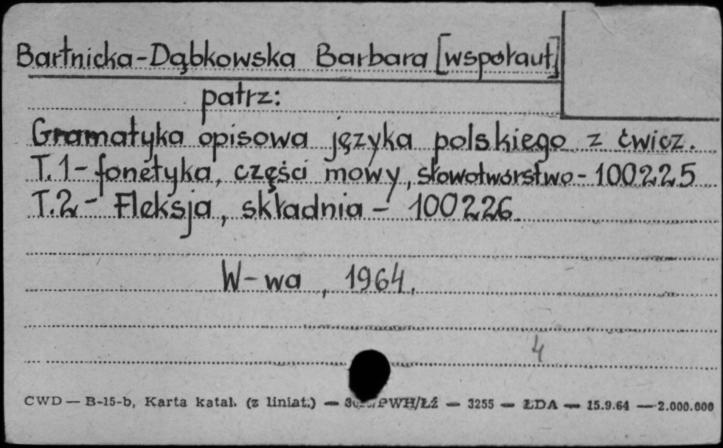 Bartnicka-Dąbkowska Barbara [współaut.]
patrz:
Gramatyka opisowa języka polskiego z ćwicz.
T.1- fonetyka, części mowy, słowotwórstwo - 100225
T.2- Fleksja, składnia - 100226
W-wa, 1964.
4
CWD — B-15-b, Karta katal. (z liniat.) — PWH/Łź — 3255 — ŁDA — 15.9.64 — 2.000.000